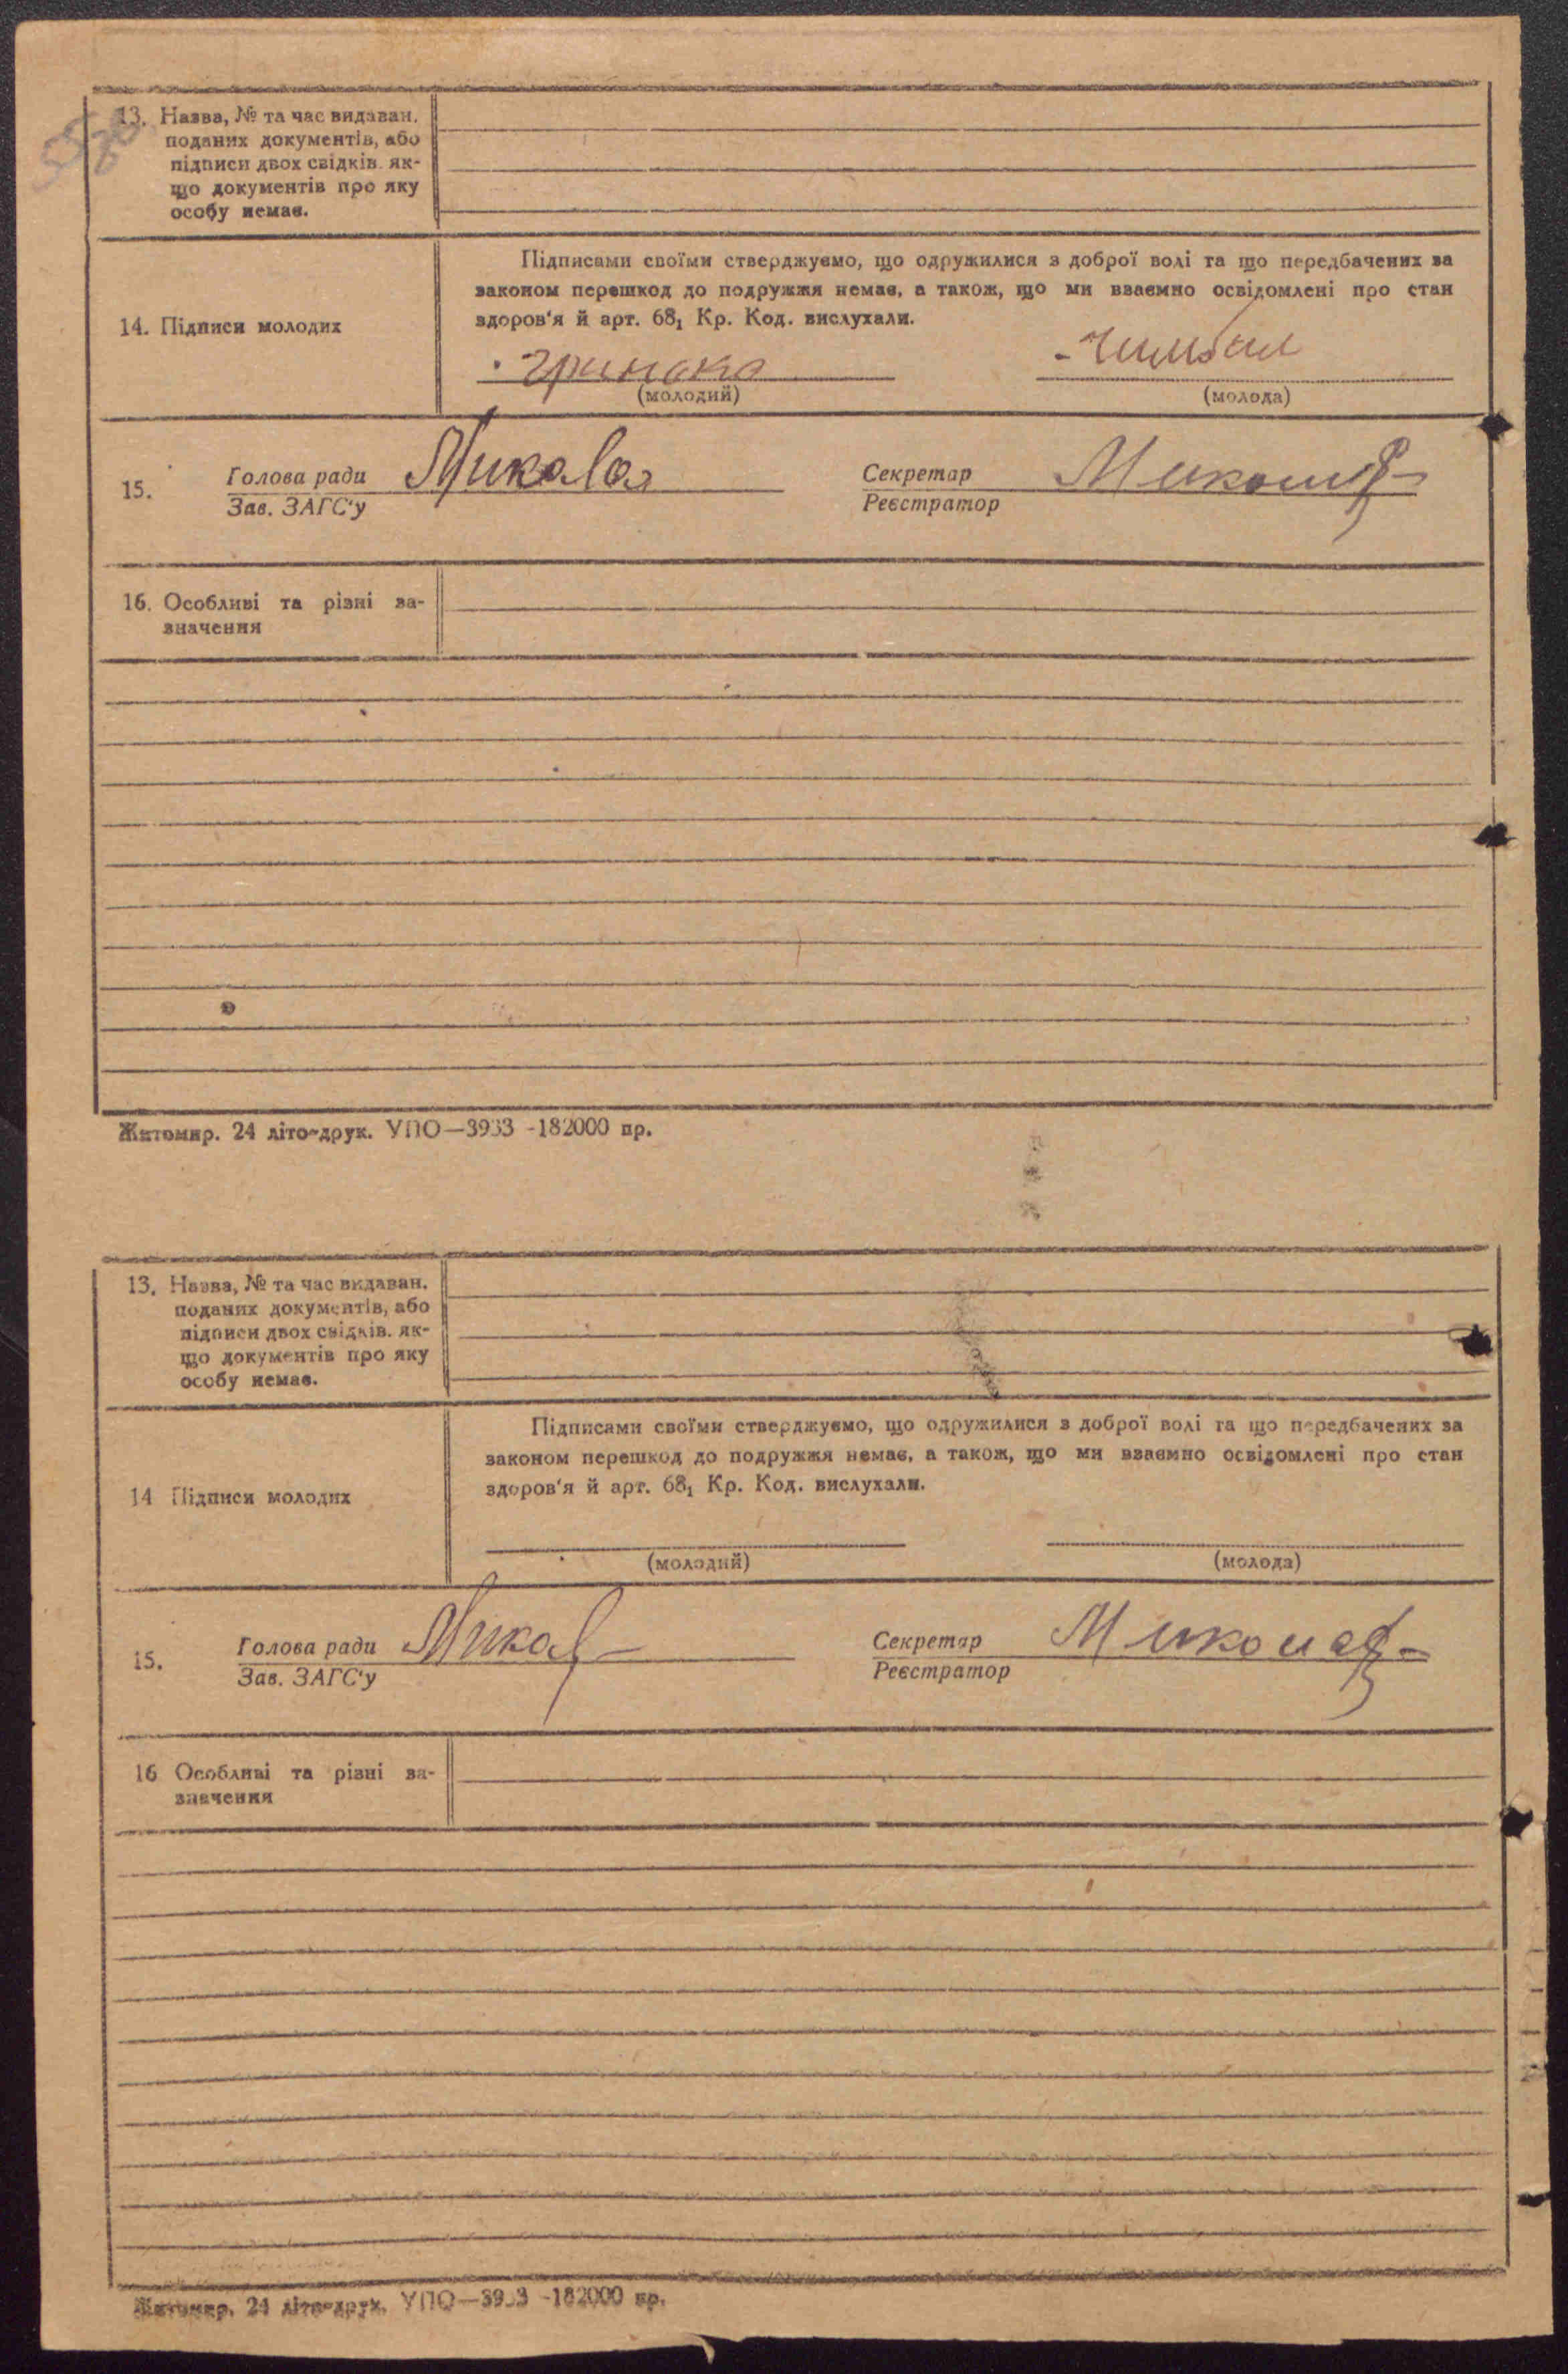 13. Назва, № та час видаван.
поданих документів, або
підписи двох свідків. як-
що документів про яку
особу немає.
Підписами своїми стверджуємо, що одружилися з доброї волі та що передбачених за
законом перешкод до подружжя немає, а також, що ми взаємно освідомлені про стан
здоров'я й арт. 68₁ Кр. Код. вислухали.
14. Підписи молодих
(молодий) (молода)
15. Голова ради Секретар
Зав. ЗАГС'у Реєстратор
16. Особливі та різні за-
значення
Житомир. 24 літо-друк. УПО—3933 -182000 пр.
13. Назва, № та час видаван.
поданих документів, або
підписи двох свідків. як-
що документів про яку
особу немає.
Підписами своїми стверджуємо, що одружилися з доброї волі та що передбачених за
законом перешкод до подружжя немає, а також, що ми взаємно освідомлені про стан
здоров'я й арт. 68₁ Кр. Код. вислухали.
14 Підписи молодих
(молодий) (молода)
15. Голова ради Секретар
Зав. ЗАГС'у Реєстратор
16 Особливі та різні за-
значення
Житомир. 24 літо-друк. УПО—3933 -182000 пр.